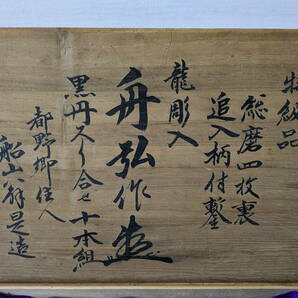 特級品
総磨四枚裏
追入柄付鑿
龍彫入
舟弘作造
黒丹スリ合セ十本組
都野郷住人
船山